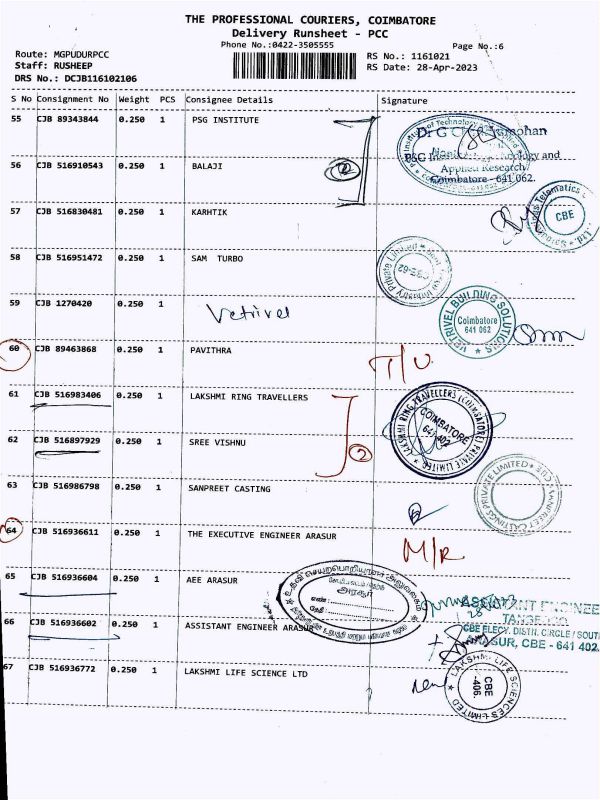 THE PROFESSIONAL COURIERS, COIMBATORE
Delivery Runsheet - PCC
Phone No.:0422-3505555
Page No.:6
Route: MGPUDURPCC
RS No.: 1161021
Staff: RUSHEEP
RS Date: 28-Apr-2023
DRS No.: DCJB116102106
S No Consignment No Weight PCS Consignee Details Signature
55 CJB 89343844 0.250 1 PSG INSTITUTE
Applied Research
Coimbatore - 641 062.
56 CJB 516910543 0.250 1 BALAJI
2
57 CJB 516830481 0.250 1 KARHTIK
CBE
58 CJB 516951472 0.250 1 SAM TURBO
59 CJB 1270420 0.250 1 Vetrivel
VETRIVEL BUILDING SOLUTIONS
Coimbatore
641 062
60 CJB 89463868 0.250 1 PAVITHRA
61 CJB 516983406 0.250 1 LAKSHMI RING TRAVELLERS
LAKSHMI RING TRAVELLERS (COIMBATORE) PRIVATE LIMITED
COIMBATORE
641 402
62 CJB 516897929 0.250 1 SREE VISHNU
2
63 CJB 516986798 0.250 1 SANPREET CASTING
64 CJB 516936611 0.250 1 THE EXECUTIVE ENGINEER ARASUR
M/R
65 CJB 516936604 0.250 1 AEE ARASUR
அரசூர்
எண் :
தேதி :
66 CJB 516936602 0.250 1 ASSISTANT ENGINEER ARASUR
CBE ELECY. DISTN. CIRCLE / SOUTH
ARASUR, CBE - 641 402.
67 CJB 516936772 0.250 1 LAKSHMI LIFE SCIENCE LTD
LAKSHMI LIFE SCIENCES LIMITED
CBE
-406.